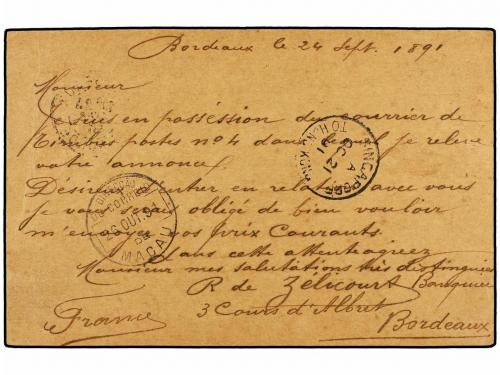 Bordeaux le 24 Sept. 1891
Monsieur
Suis en posséssion du courrier de
timbres postes no 4 dans lequel je releve
votre annonce.
Désireux d'entrer en relation avec vous
je vous serais obligé de bien vouloir
m'envoyer vos prix Courants.
Dans cette attente agreez
Monsieur mes salutations très distinguées
R de Zélicourt Banquier
3 Cours d'Albret
France Bordeaux
SINGAPORE TO HONG KONG
A
OC 21
91
CORREIO
26 OUT 91
DE
MACAU